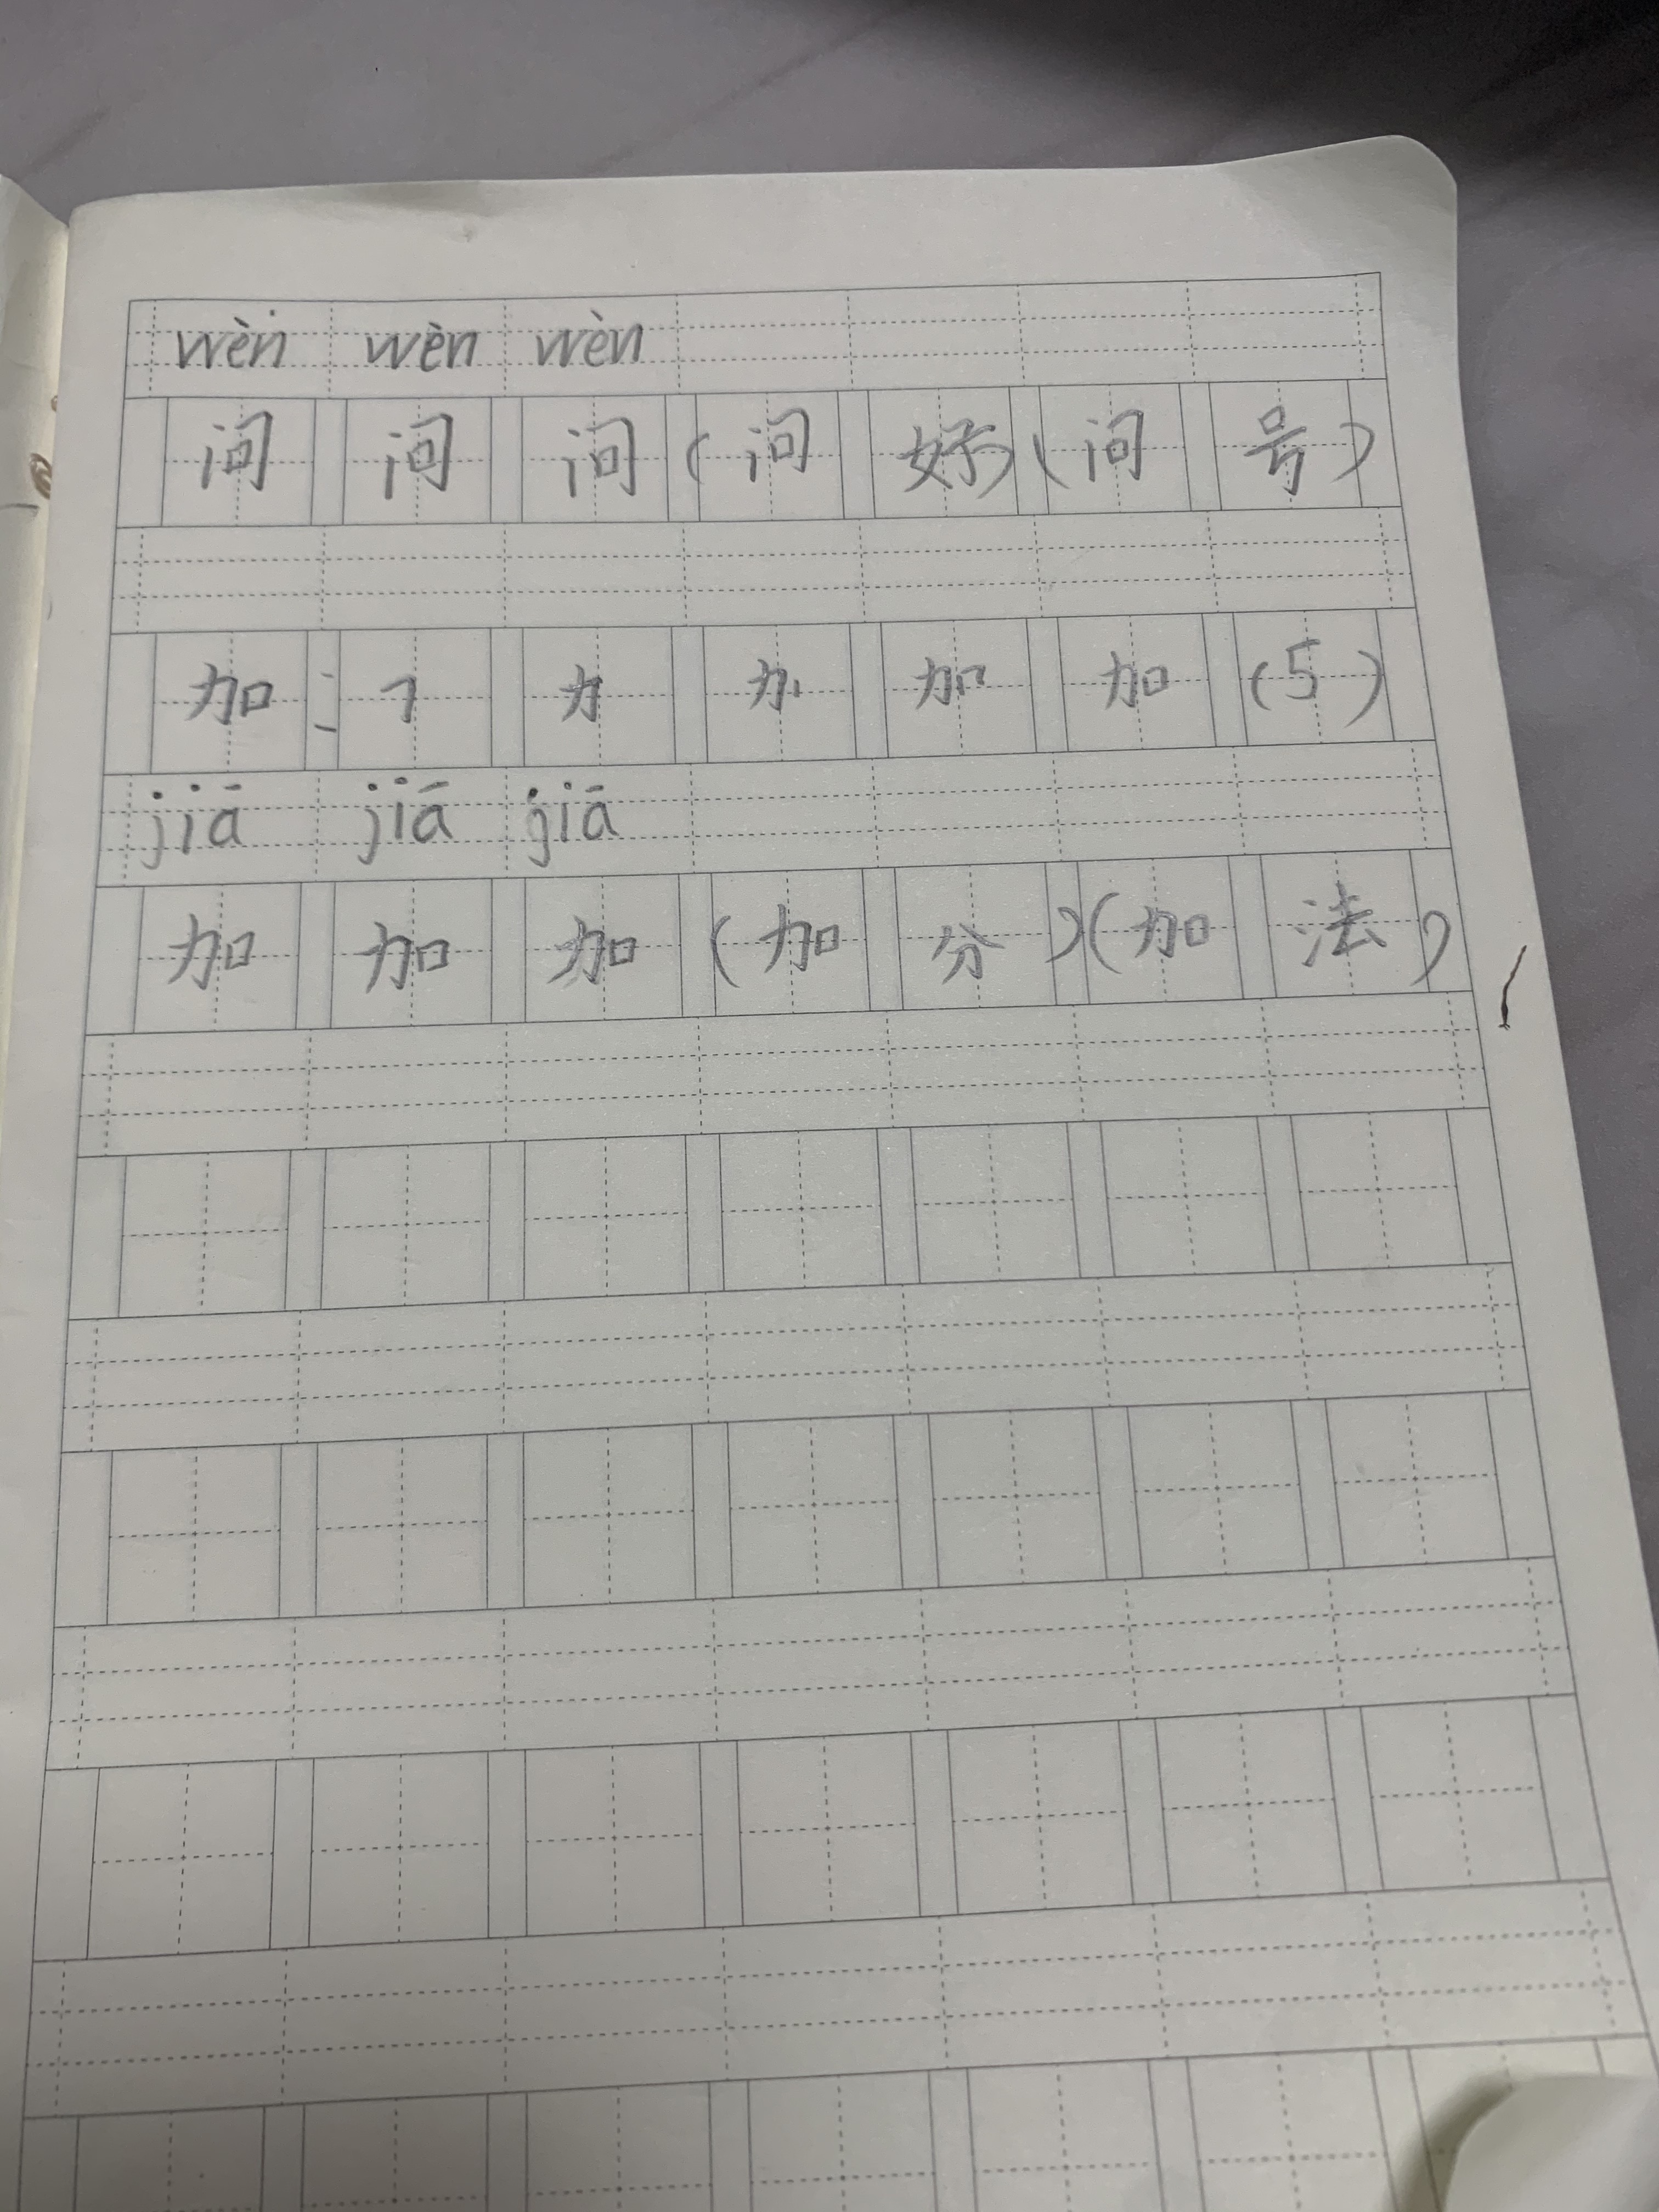 wèn wèn wèn
问 问 问 (问 好) (问 号)
加 : ㇆ 力 加 加 (5)
jiā jiā jiā
加 加 加 (加 分) (加 法)